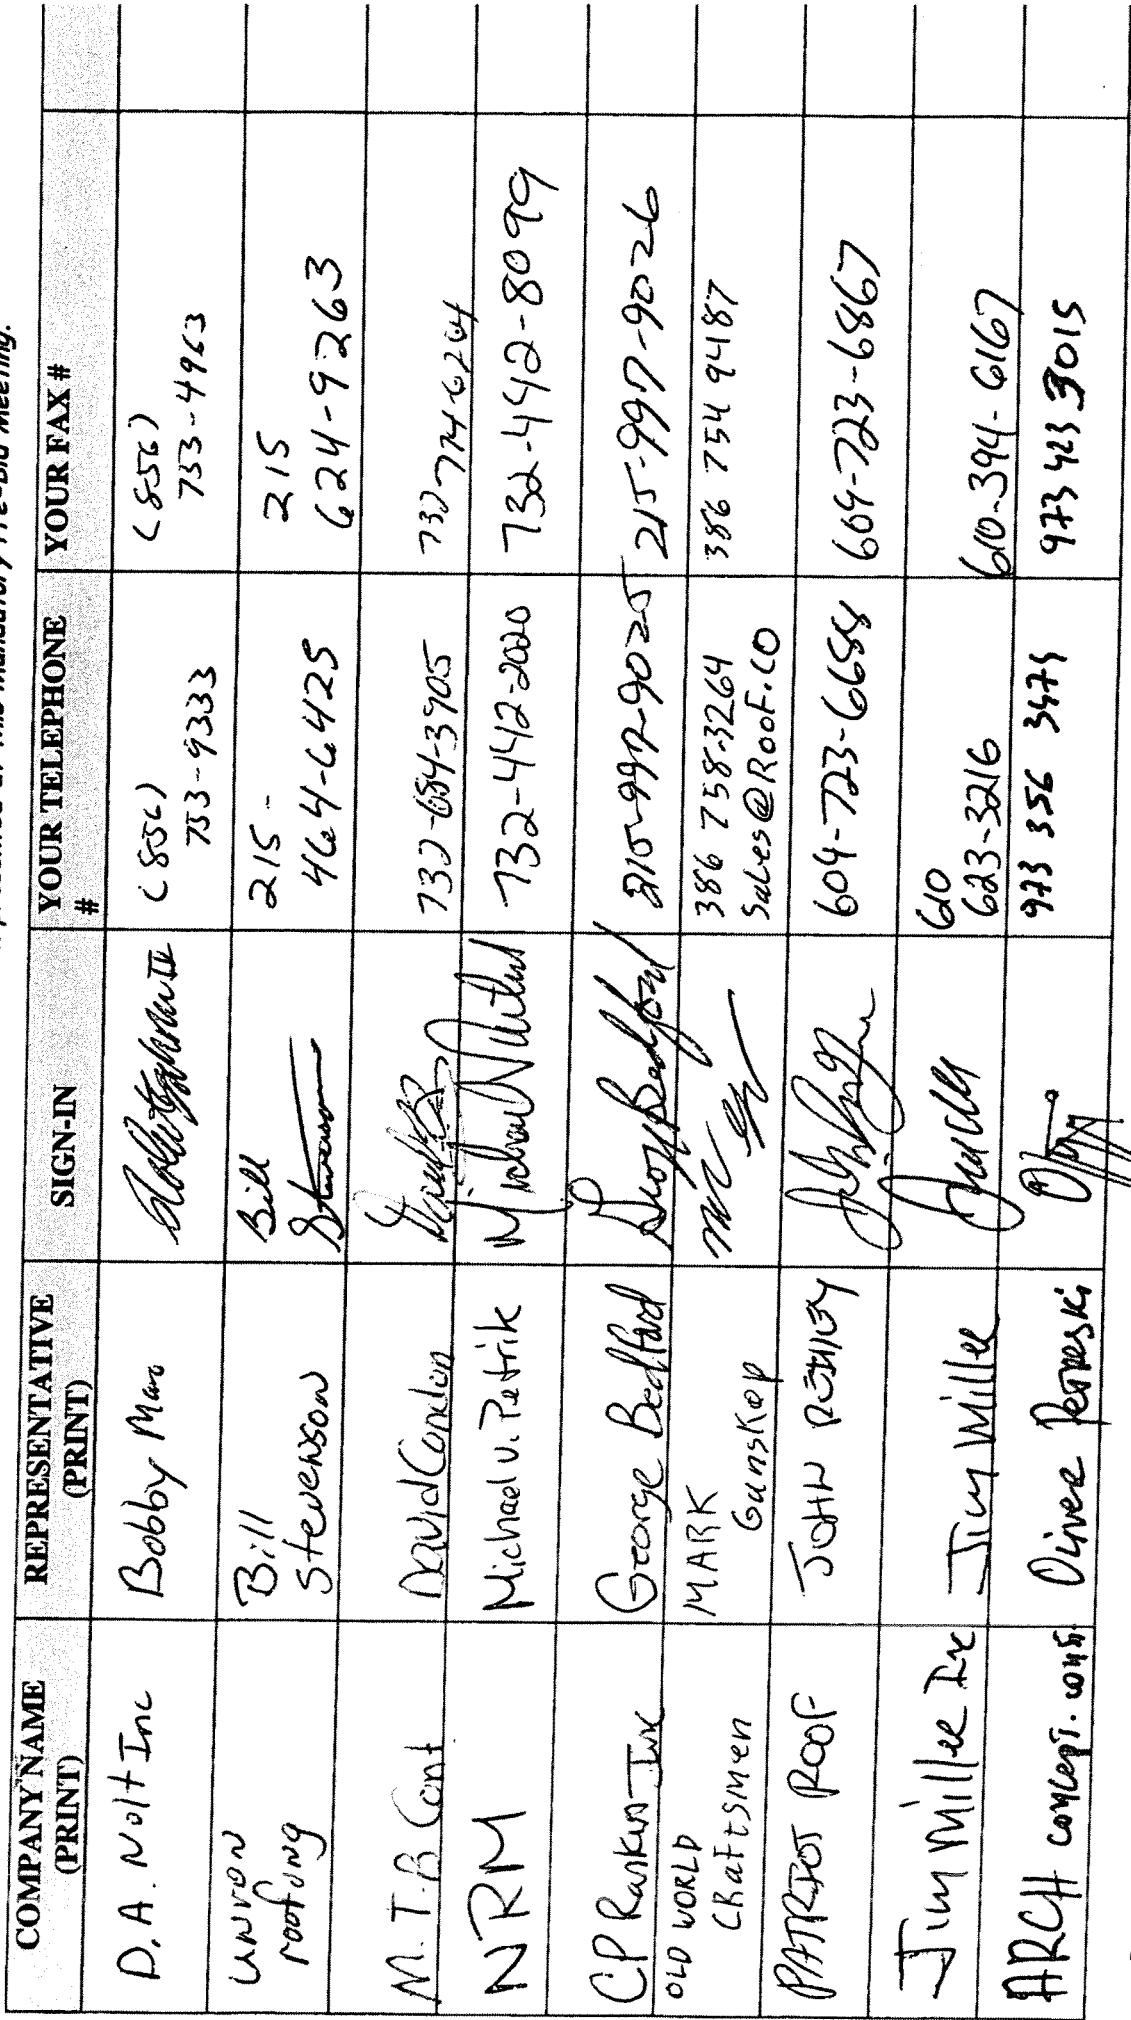 Mandatory Pre-Bid Meeting.
COMPANY NAME (PRINT) REPRESENTATIVE (PRINT) SIGN-IN YOUR TELEPHONE # YOUR FAX #
D.A. Nolt Inc Bobby (856) 733-9333 (856) 733-4963
union roofing Bill Stevenson Bill Stevenson 215- 464-6425 215 624-9263
M.T.B Cont David Condon 732-684-3905 732 774-6204
NRM Michael V. Petrik 732-442-2020 732-442-8099
CP Rankin Inc George Bedford George Bedford 215-997-9025 215-997-9026
OLD WORLD CRaftsmen MARK Gunskop 386 758-3264 Sales@Roof.CO 386 754 9487
PATRIOT ROOF JOHN 609-723-6688 609-723-6867
Jim Miller Inc Jim Miller 610 623-3216 610-394-6167
ARCH concept. const. Oliver Petreski 973 356 3475 973 423 3015